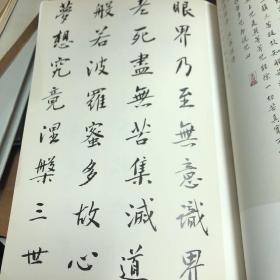 眼界乃至無意識界
老死盡無苦集滅道
般若波羅蜜多故心
夢想究竟涅槃三世